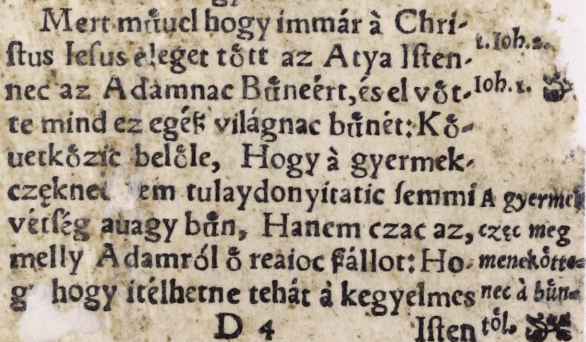 Mert műuel hogy immár à Chri-
stus Iesus eleget tőtt az Atya Isten-
nec az Adamnac Bűneért, és el vőt-
te mind ez egéſz világnac bűnét: Kő-
uetkőzic belőle, Hogy à gyermek-
częknec em tulaydonyítatic semmi
vétség auagy bűn, Hanem czac az,
melly Adamról ő reaioc ſzállot: Ho-
g hogy itélhetne tehát à kegyelmes
D 4 Isten
1. Ioh. 2.
Ioh. 1.
A gyermek
częc meg
menekőtte-
nec à bűn-
től.